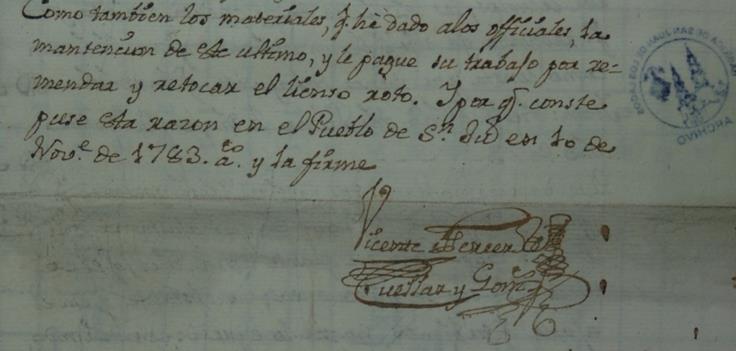 Como tambien los materiales, q̃ he dado alos officiales, la
mantencion de este ultimo, y le pague su trabajo por re=
mendar y retocar el lienso roto. Y por q̃. conste
puse esta razon en el Pueblo de Sn. en 10 de
Nove. de 1783. a. y la firme
Vicente
Cuellar y
ARCHIVO